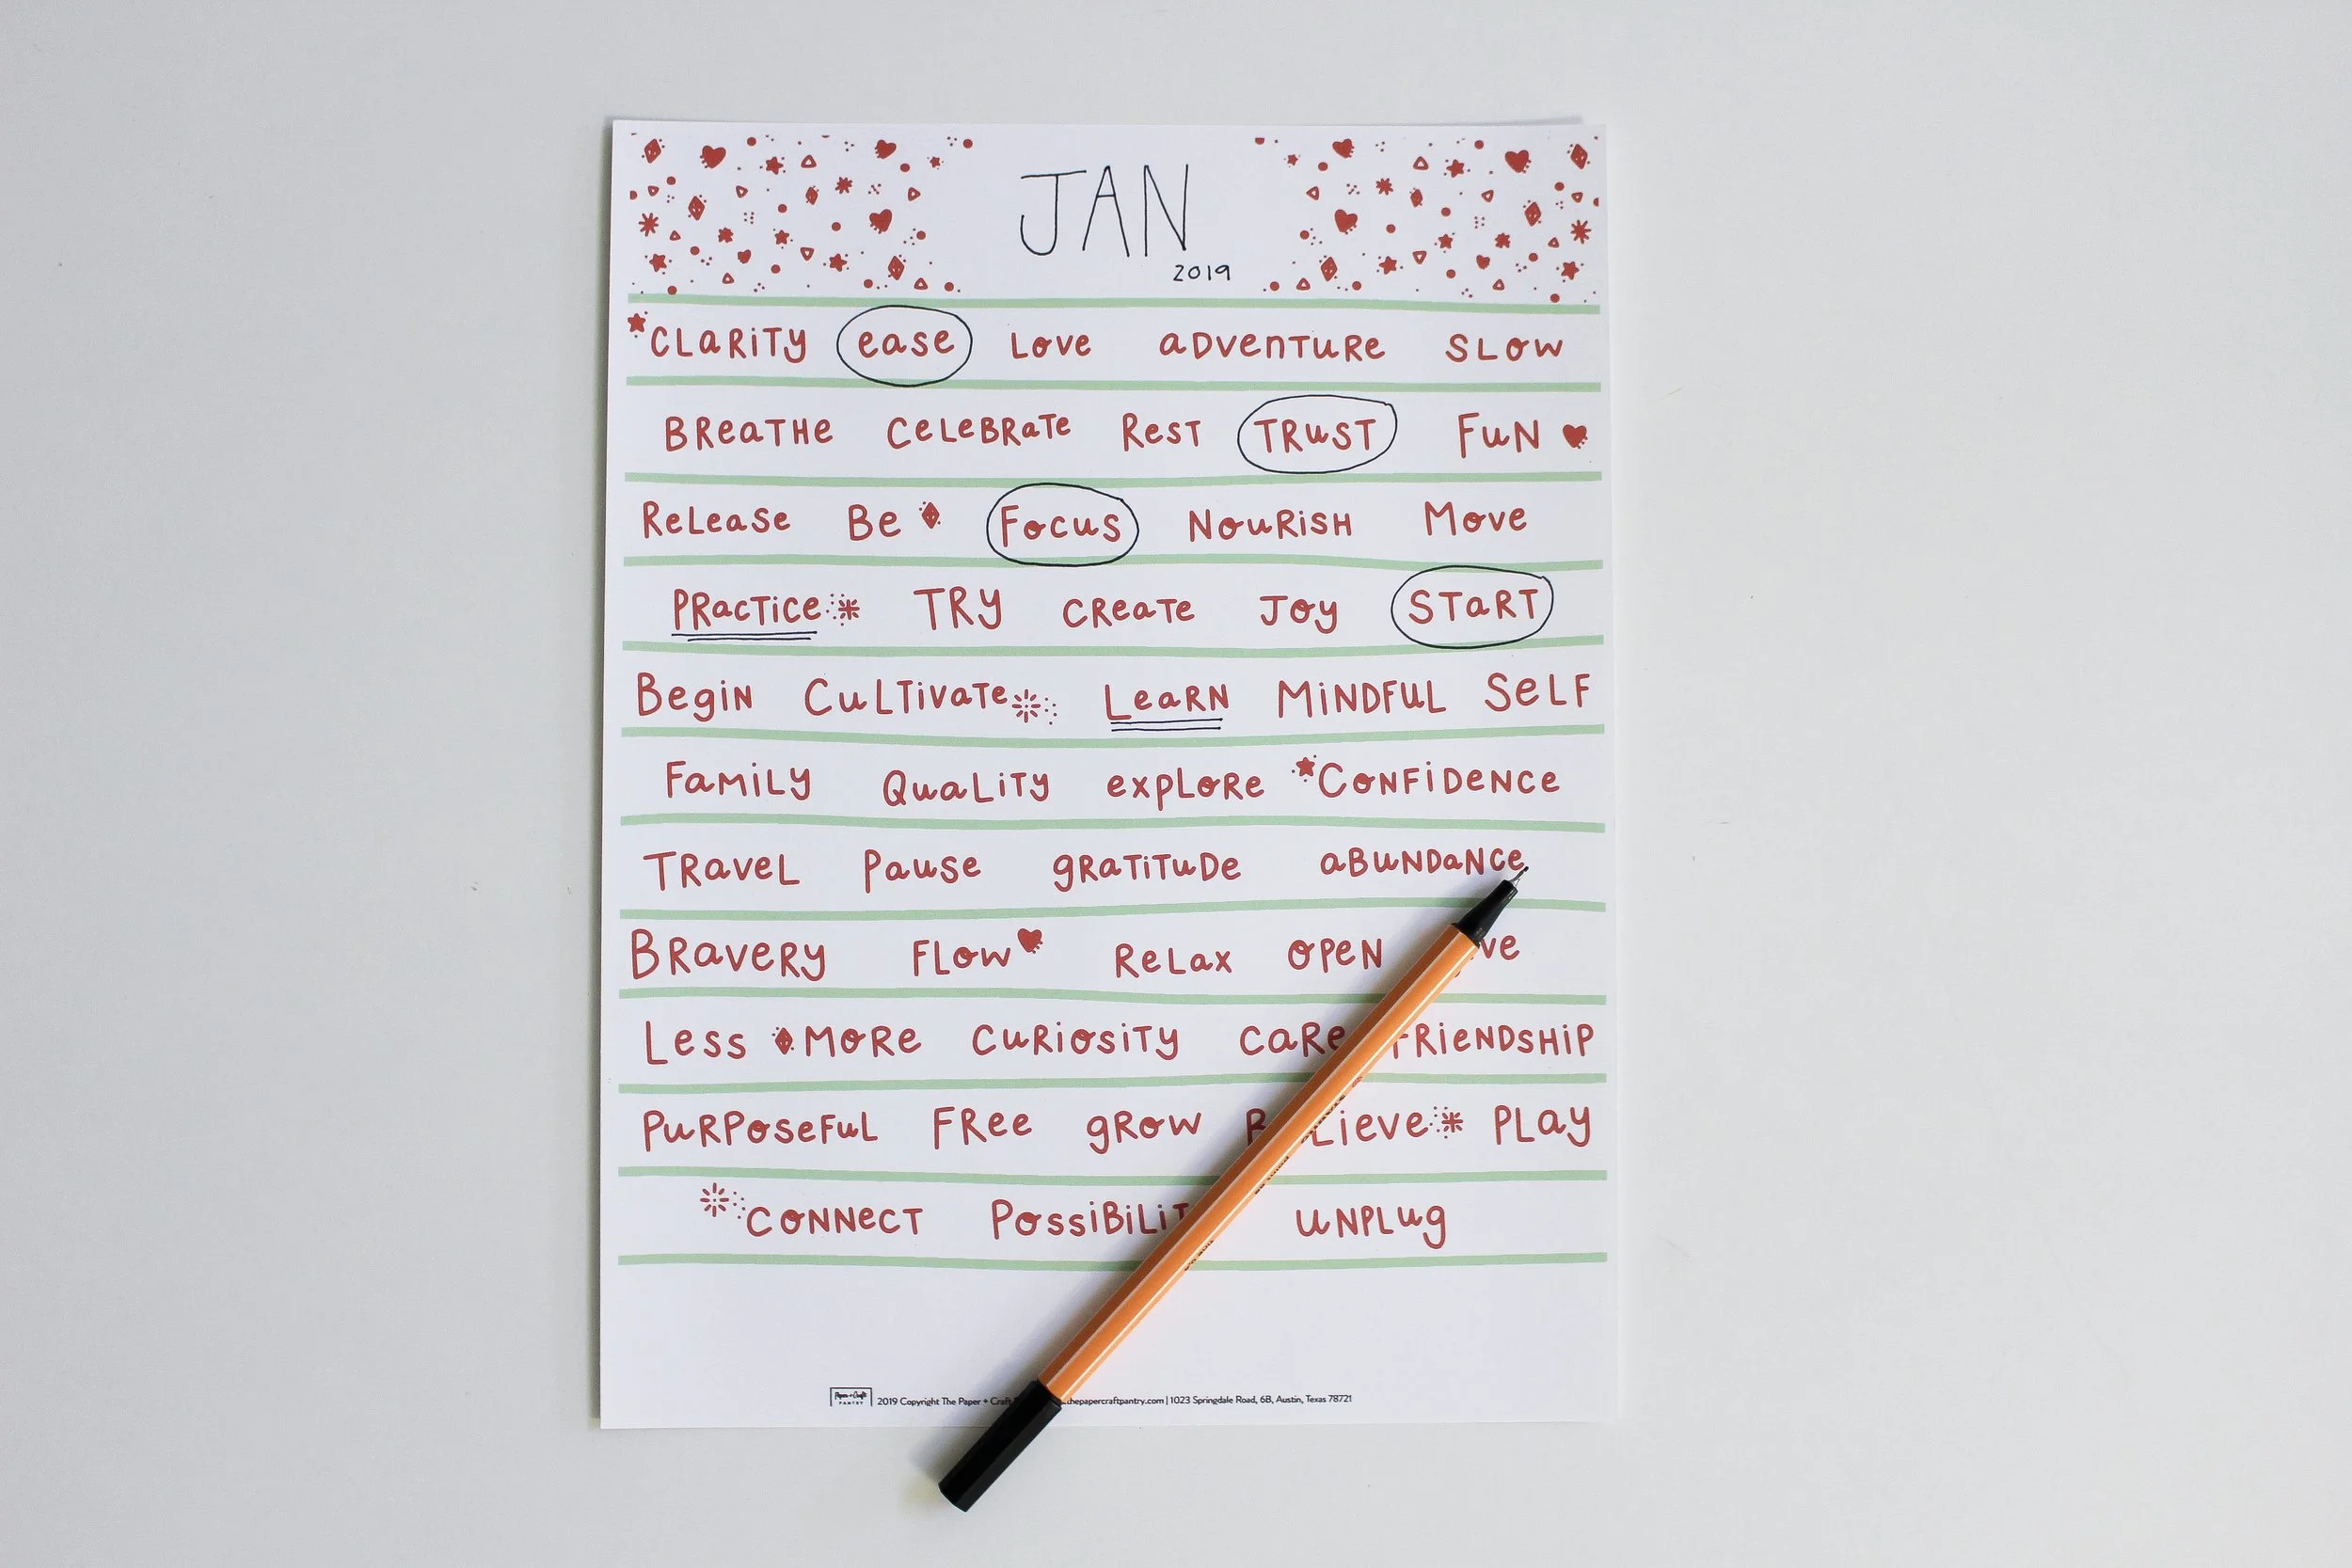 JAN
2019
CLaRiTY ease Love aDvenTuRe SLow
BReaTHe CeLeBRaTe ResT TRusT FuN
ReLease Be Focus NouRiSH Move
PRacTice TRy CReaTe Joy STaRT
Begin CuLTivaTe LeaRN MiNDFuL SeLF
FaMiLy QuaLiTy expLoRe CoNFiDeNce
TRaveL Pause gRaTiTuDe aBuNDaNce
BRaveRy FLow ReLax oPeN
Less MoRe CuRiosiTy CaRe FRieNDSHiP
PuRPoseFuL FRee gRow PLay
CoNNecT uNPLug
Paper + Craft
PANTRY
2019 Copyright The Paper + Craft thepapercraftpantry.com | 1023 Springdale Road, 6B, Austin, Texas 78721